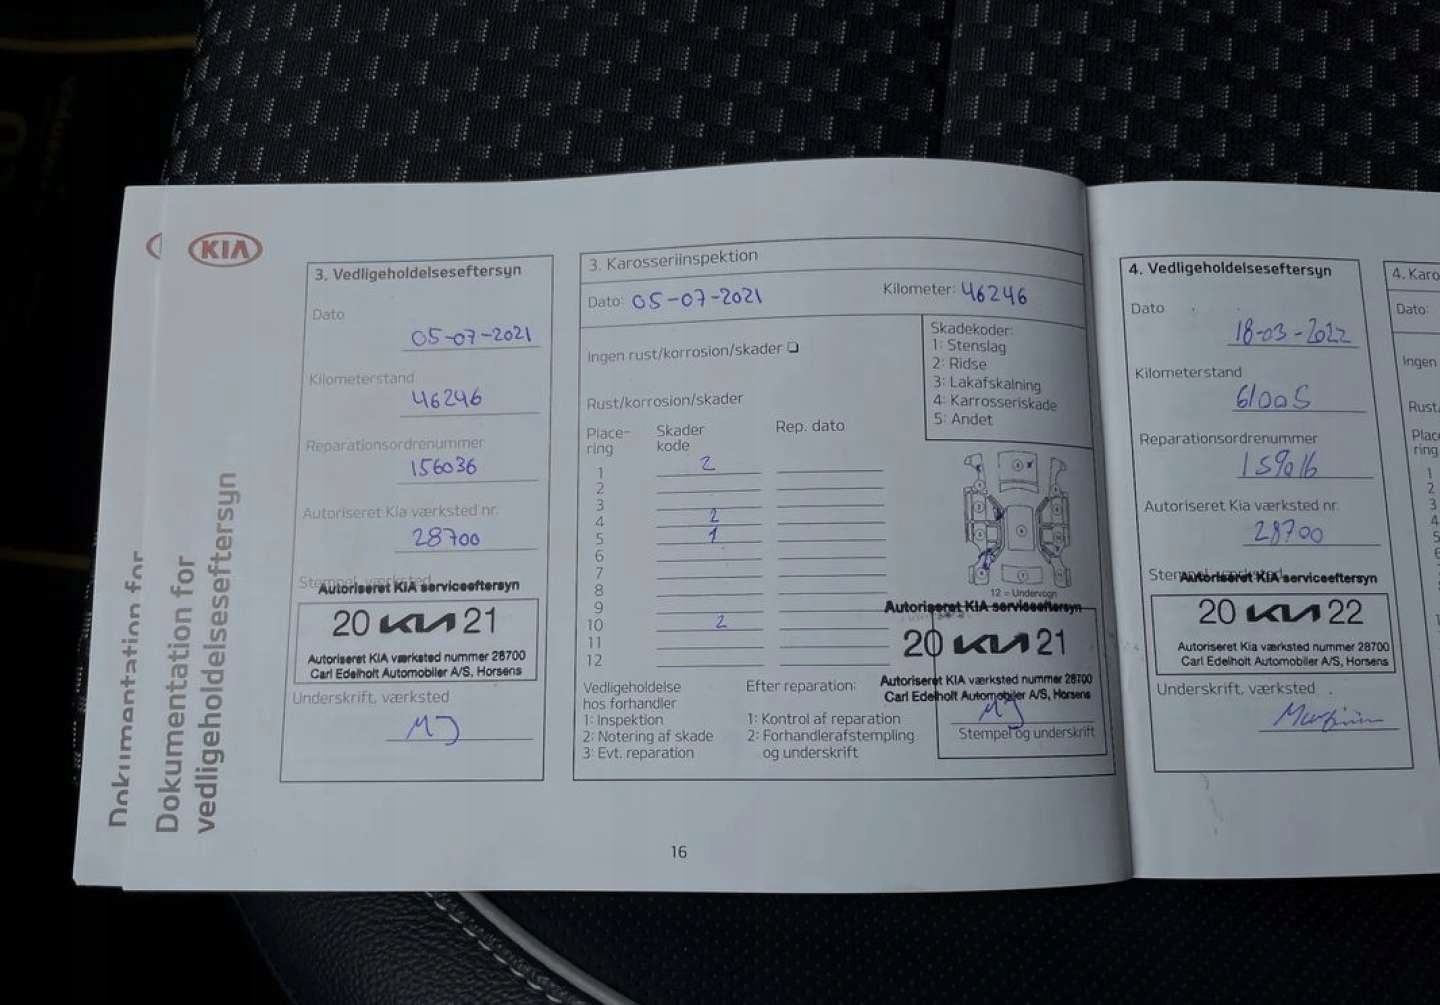 KIA
Dokumentation for
Dokumentation for
vedligeholdelseseftersyn
3. Vedligeholdelseseftersyn
Dato
05-07-2021
Kilometerstand
46246
Reparationsordrenummer
156036
Autoriseret Kia værksted nr.
28700
Stempel, værksted
Autoriseret KIA serviceeftersyn
20 KIA 21
Autoriseret KIA værksted nummer 28700
Carl Edelholt Automobiler A/S, Horsens
Underskrift, værksted
MJ
3. Karosseriinspektion
Dato: 05-07-2021 Kilometer: 46246
Ingen rust/korrosion/skader
Skadekoder:
1: Stenslag
2: Ridse
3: Lakafskalning
4: Karrosseriskade
5: Andet
Rust/korrosion/skader
Place-
ring
Skader
kode
Rep. dato
1 2
2
3
4 2
5 1
6
7
8
9
10 2
11
12
12 = Undervogn
Autoriseret KIA serviceeftersyn
20 KIA 21
Autoriseret KIA værksted nummer 28700
Carl Edelholt Automobiler A/S, Horsens
MJ
Stempel og underskrift
Vedligeholdelse
hos forhandler
1: Inspektion
2: Notering af skade
3: Evt. reparation
Efter reparation:
1: Kontrol af reparation
2: Forhandlerafstempling
og underskrift
16
4. Vedligeholdelseseftersyn
Dato
18-03-2022
Kilometerstand
61005
Reparationsordrenummer
159016
Autoriseret Kia værksted nr.
28700
Autoriseret KIA serviceeftersyn
20 KIA 22
Autoriseret KIA værksted nummer 28700
Carl Edelholt Automobiler A/S, Horsens
Underskrift, værksted
4. Karo
Dato:
Ingen
Rust/
Place
ring
1
2
3
4
5
6